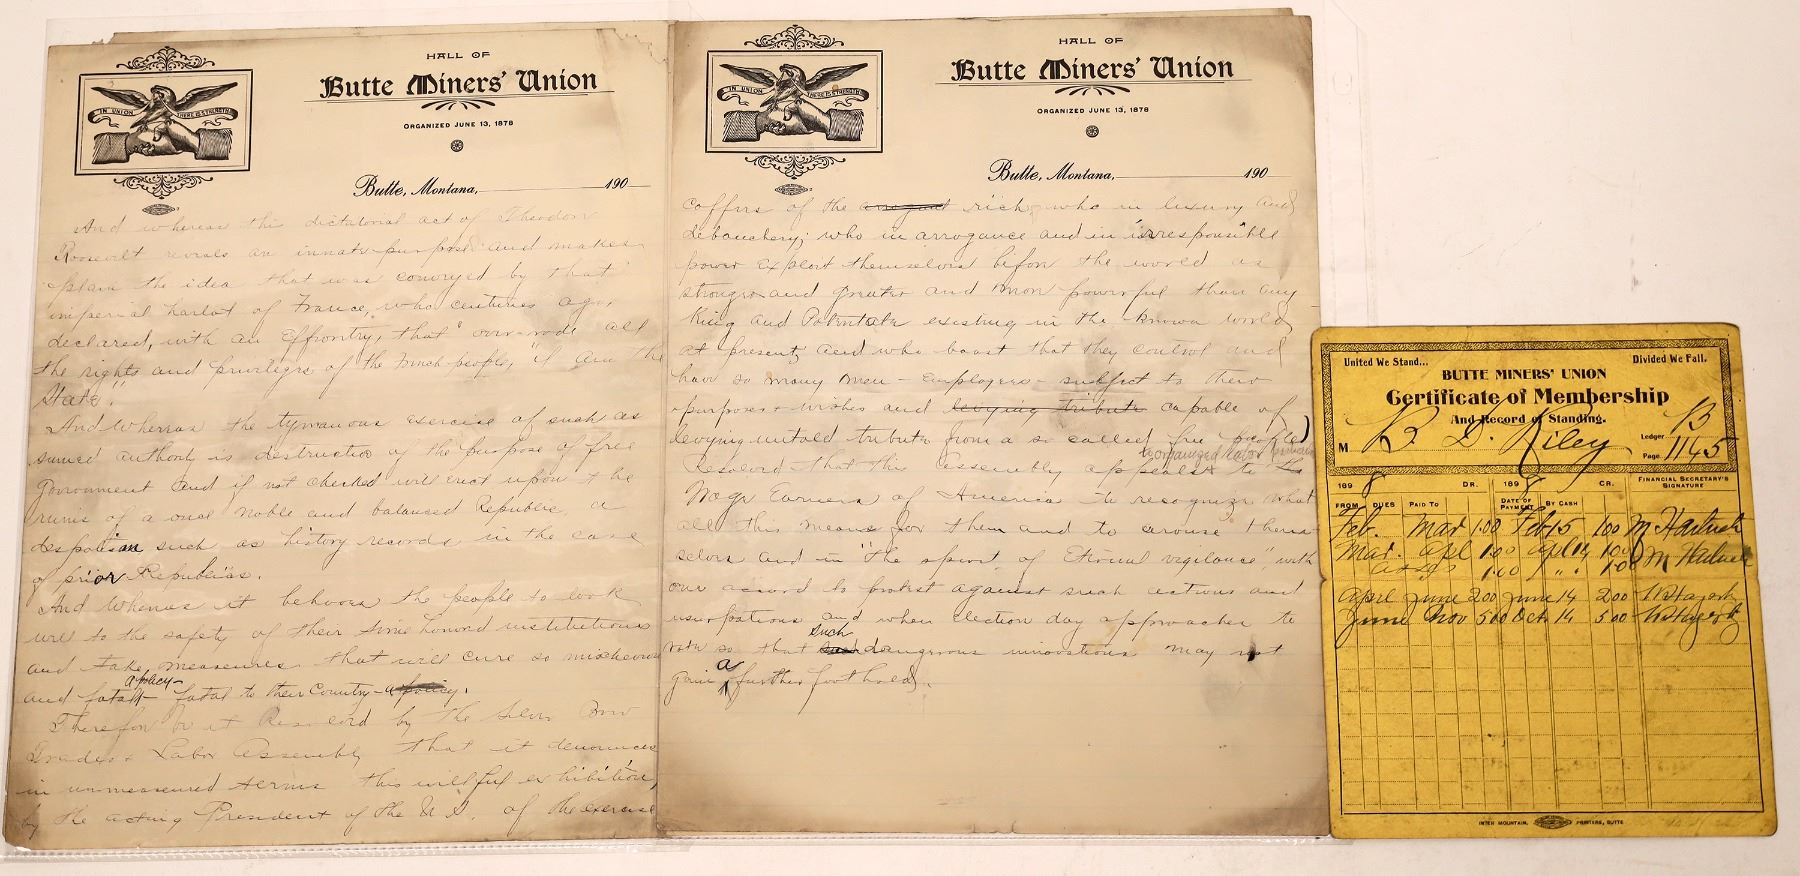 HALL OF
Butte Miners' Union
ORGANIZED JUNE 13, 1878
IN UNION THERE IS STRENGTH
Butte, Montana, 190
And whereas this dictatorial act of Theodore
Roosevelt reveals an innate purpose and makes
plain the idea that was conveyed by that
imperial harlot of France, who centuries ago,
declared, with an Effrontry, that over-rode all
the rights and privileges of the French people, "I am the
State".
And Whereas the tyranous exercise of such as
sumed authority is destructive of the purpose of free
Government and if not checked will erect upon the
ruins of a once noble and balanced Republic, a
despotism such as history records in the case
of prior Republics.
And Whereas it behooves the people to look
well to the safety of their time honored institutions
and take measures that will cure so mischievous
and fatal a policy- fatal to their Country - a policy.
Therefore be it Resolved by the Silver Bow
Trades & Labor Assembly that it denounces
in unmeasured terms this willful exhibition,
by the acting President of the U.S. of the exercise
HALL OF
Butte Miners' Union
ORGANIZED JUNE 13, 1878
IN UNION THERE IS STRENGTH
Butte, Montana, 190
coffers of the arrogant rich, who in luxury and
debauchery; who in arrogance and in irresponsible
power exploit themselves before the world as
stronger and greater and more powerful than any
King and Potentate existing in the known world
at present, and who boast that they control and
have so many men - employees - subject to their
purposes & wishes and levying tribute capable of
levying untold tribute from a so called free people)
to organized labor
Resolved that this Assembly appeals to the
Wage Earners of America to recognize what
all this means for them and to arouse them
selves and in "the spirit of Eternal vigilance", with
one accord to protest against such actions and
usurpations and when election day approaches to
vote so that such dangerous innovations may not
gain a further foothold.
United We Stand... Divided We Fall.
BUTTE MINERS' UNION
Certificate of Membership
And Record of Standing.
M B. D. Riley Ledger B
Page 1145
1898 DR. 1898 CR. FINANCIAL SECRETARY'S SIGNATURE
FROM DUES PAID TO DATE OF PAYMENT BY CASH
Feb. Mar 1.00 Feb 15 1.00 M
Mar. Apl 1.00 Apl 14 1.00 M
1.00 " " 1.00
April June 2.00 June 14 2.00
June Nov 5.00 Oct 14 5.00
INTER MOUNTAIN, PRINTERS, BUTTE